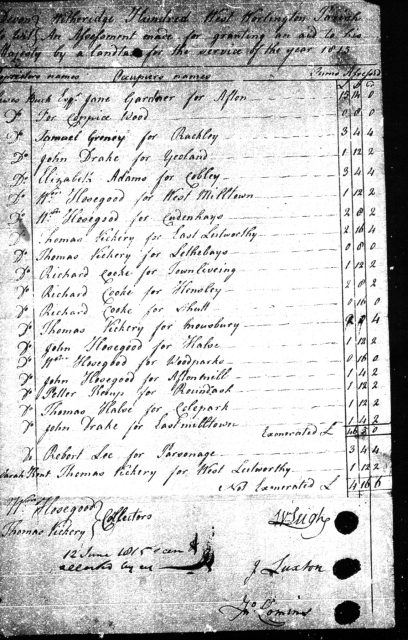 Devon Witheridge Hundred West Worlington Parish
to wit An Assessment made for granting an aid to his
Majesty by a landtax for the service of the year 1815
Proprietors names Occupiers names Sums Assessed
Lewes Buck Esqr Jane Gardner for Afton 15 14 0
Do For Coppice Wood 0 8 0
Do Samuel Greney for Rackley 3 4 4
Do John Drake for Yeoland 1 12 2
Do Elizabeth Adams for Cobley 3 4 4
Do Wm Hosegood for West Milltown 1 12 2
Do Wm Hosegood for Cudenhays 2 8 2
Thomas Vickery for East Lutworthy 2 16 4
Do Thomas Vickery for Lethebays 0 8 0
Do Richard Cooke for Townliving 1 12 2
Do Richard Cooke for Hensley 2 0 2
Do Richard Cooke for Shutt 0 16 0
Do Thomas Vickery for 4
Do John Hosegood for Halse 1 12 2
Do Wm Hosegood for Woodparks 0 16 0
Do John Hosegood for Aftonmill 1 4 2
Do for Roundash 1 12 2
Do Thomas Halse for Colepark 1 12 2
Do John Drake for Eastmilltown 1 4 2
Exonerated £ 46 0
Do Robert Lee for Parsonage 3 4 4
Sarah Thomas Vickery for West Lutworthy 1 12 2
Not Exonerated £ 4 16 6
Wm Hosegood
Thomas Vickery } Collectors
12 June 1815
by us
J Luxton